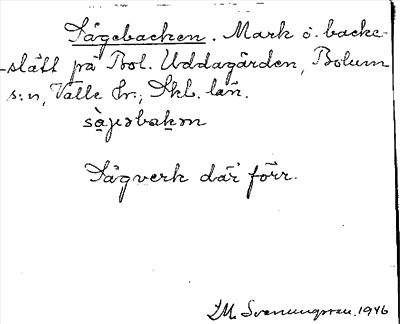 Sågebacken. Mark o. backe-
slätt på Bol. Uddagården, Bolum
s:n, Valle hr., Skb. län.
Sågverk där förr.
Svenungsson. 1946